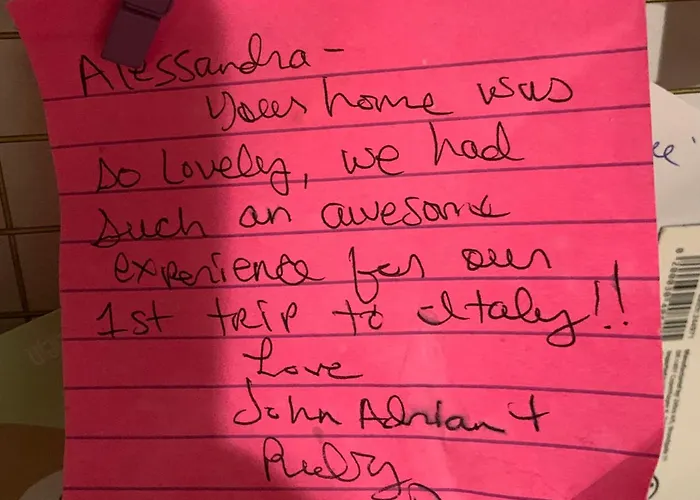 Alessandra -
Your home was
so lovely, we had
such an awesome
experience for our
1st trip to Italy!!
Love
John Adrian +
Ruby